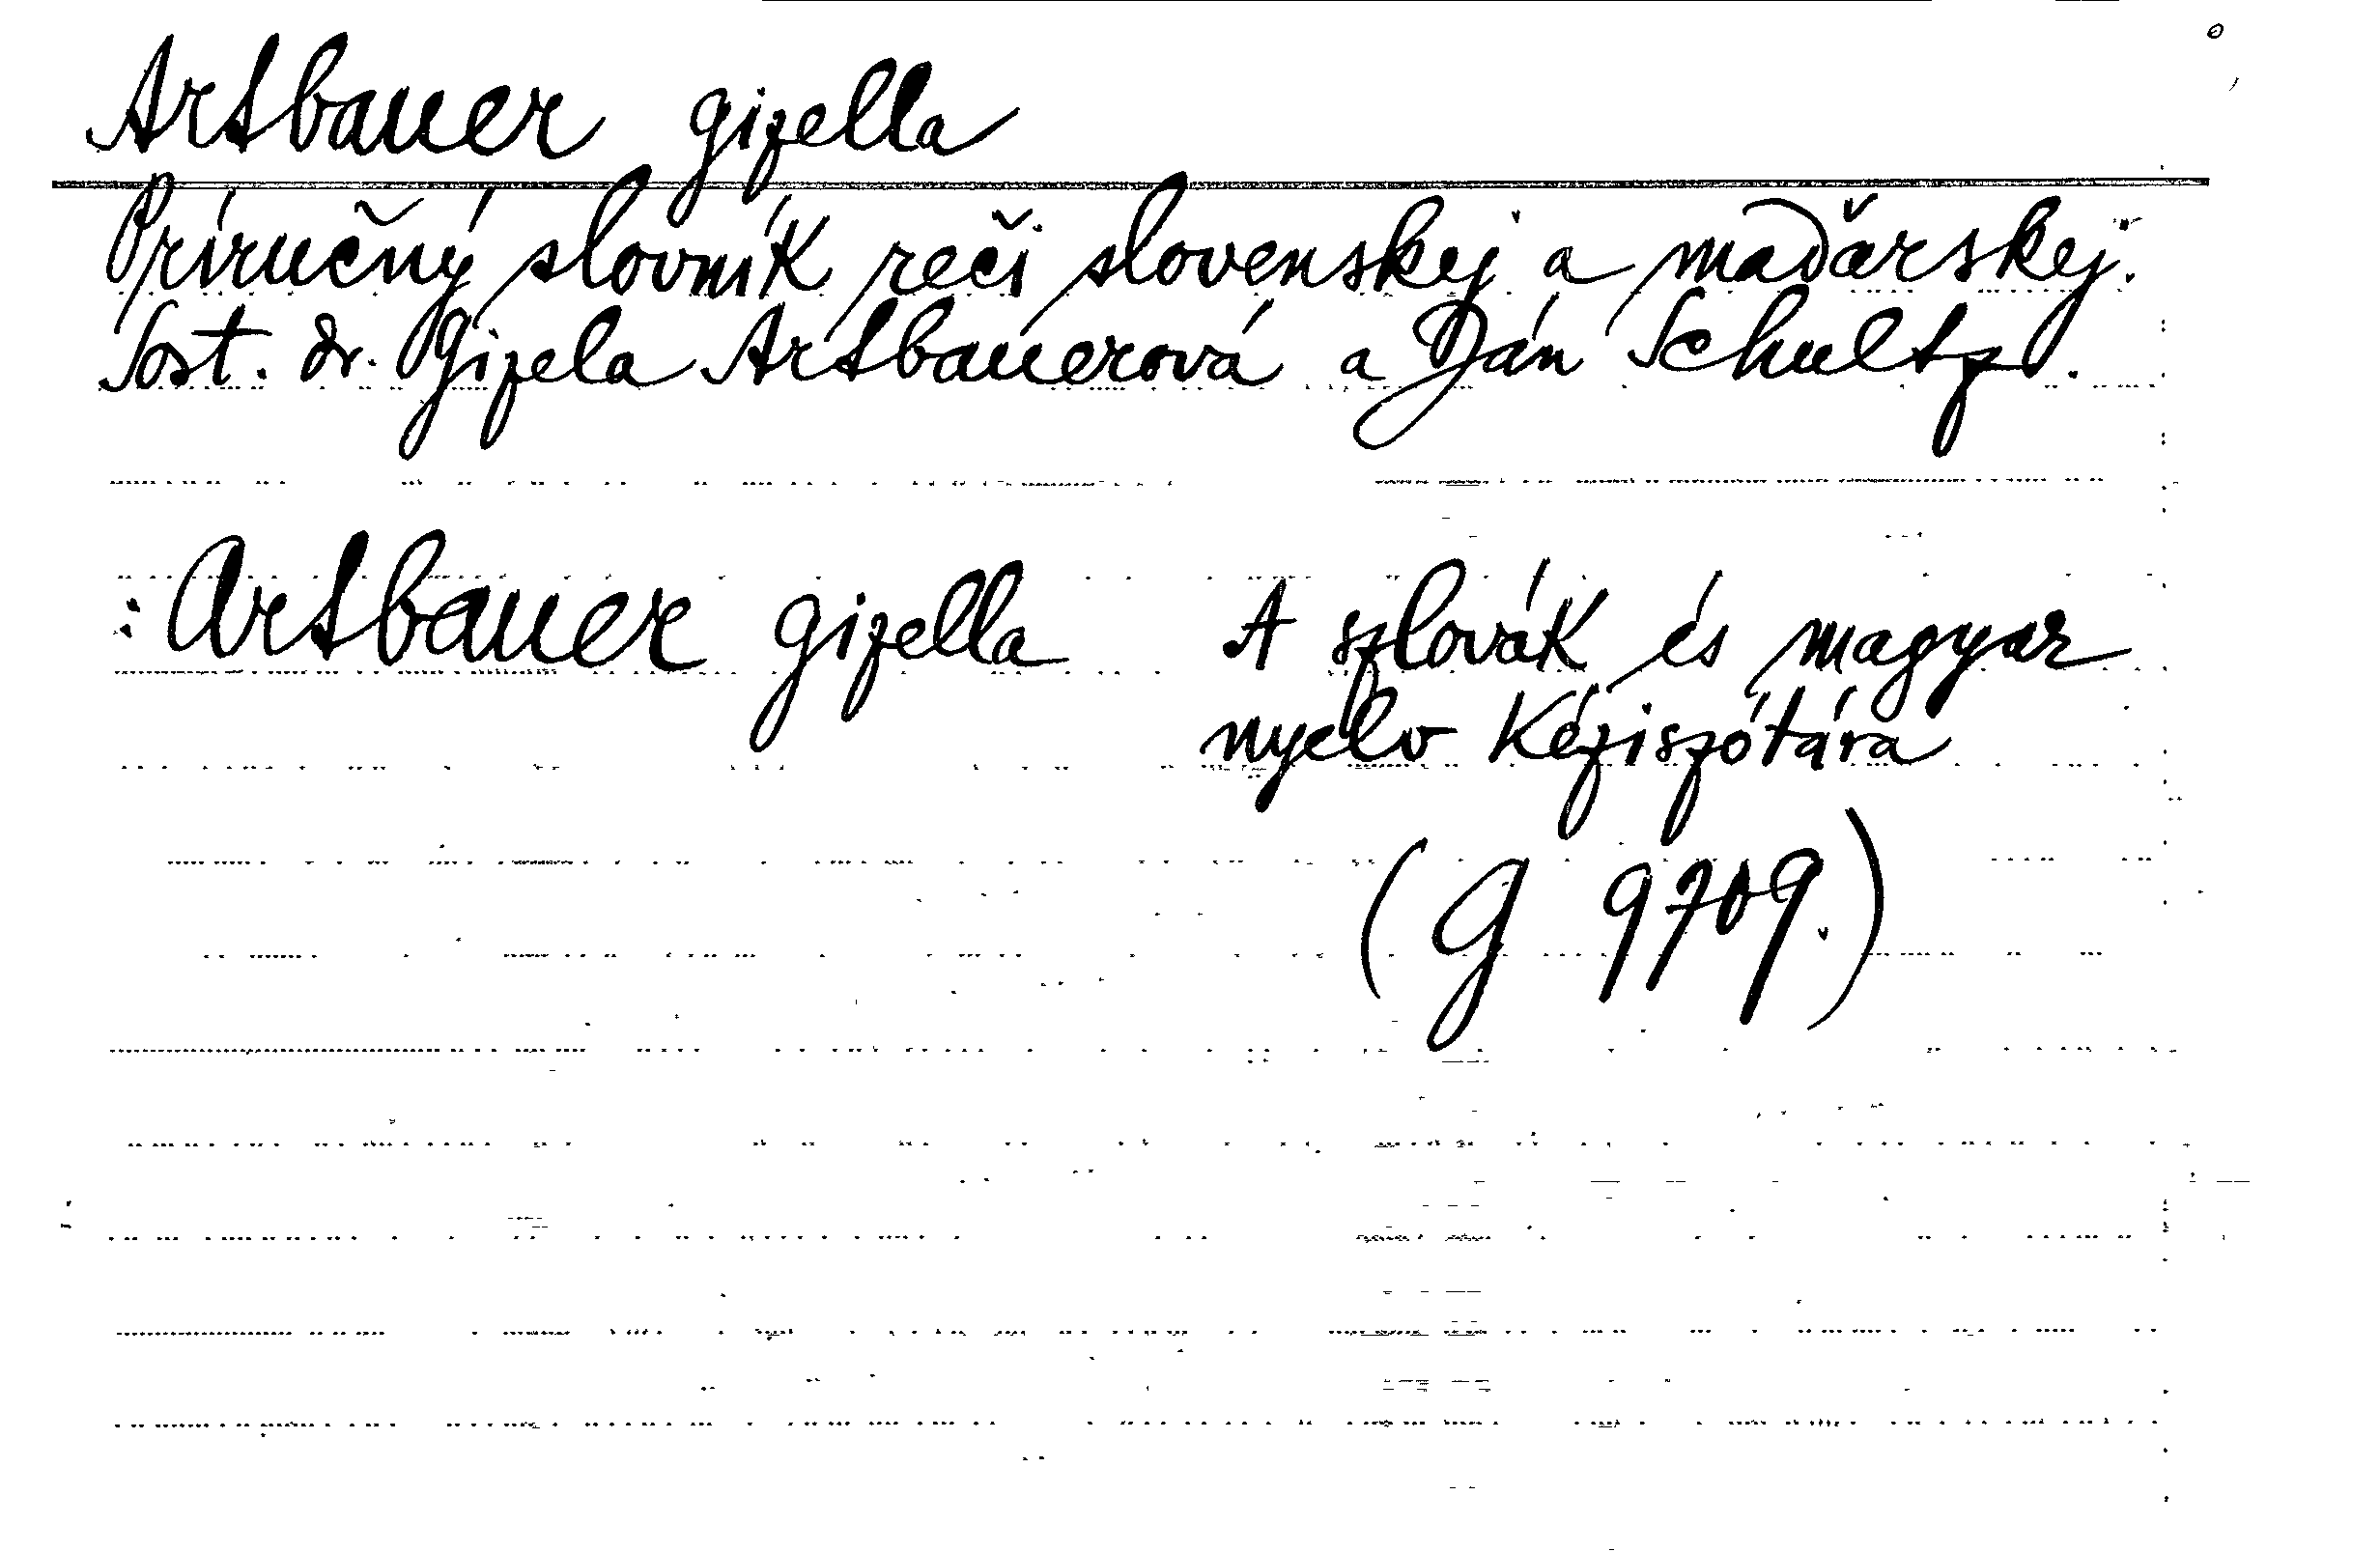 Artbauer Gizella
Príručný slovník reči slovenskej a maďarskej.
Sost. dr. Gizela Artbauerová a Ján Schultz.
: Artbauer Gizella A szlovák és magyar
nyelv Kéziszótára
(G 9709.)